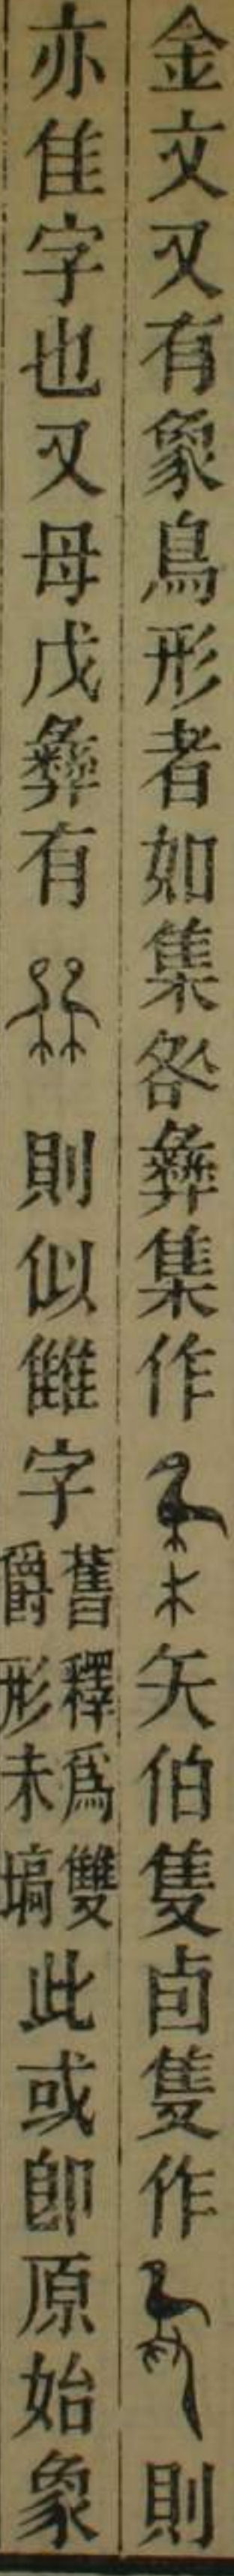 金文又有象鳥形者如集咎彝集作矢伯隻卣隻作則
亦隹字也又母戊彝有則似雔字舊釋為雙爵形未塙此或即原始象